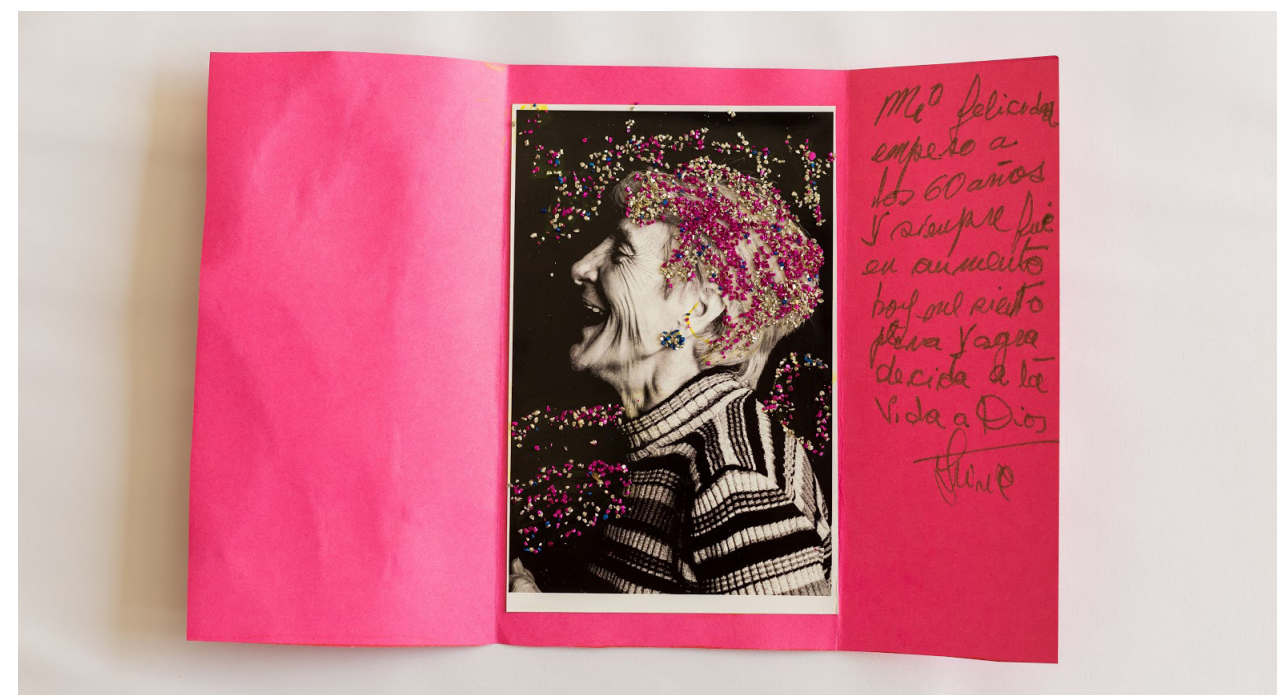 felicidad
empeso a
los 60 años
y siempre fué
en aumento
hoy me siento
plena y agra
decida a la
Vida a Dios